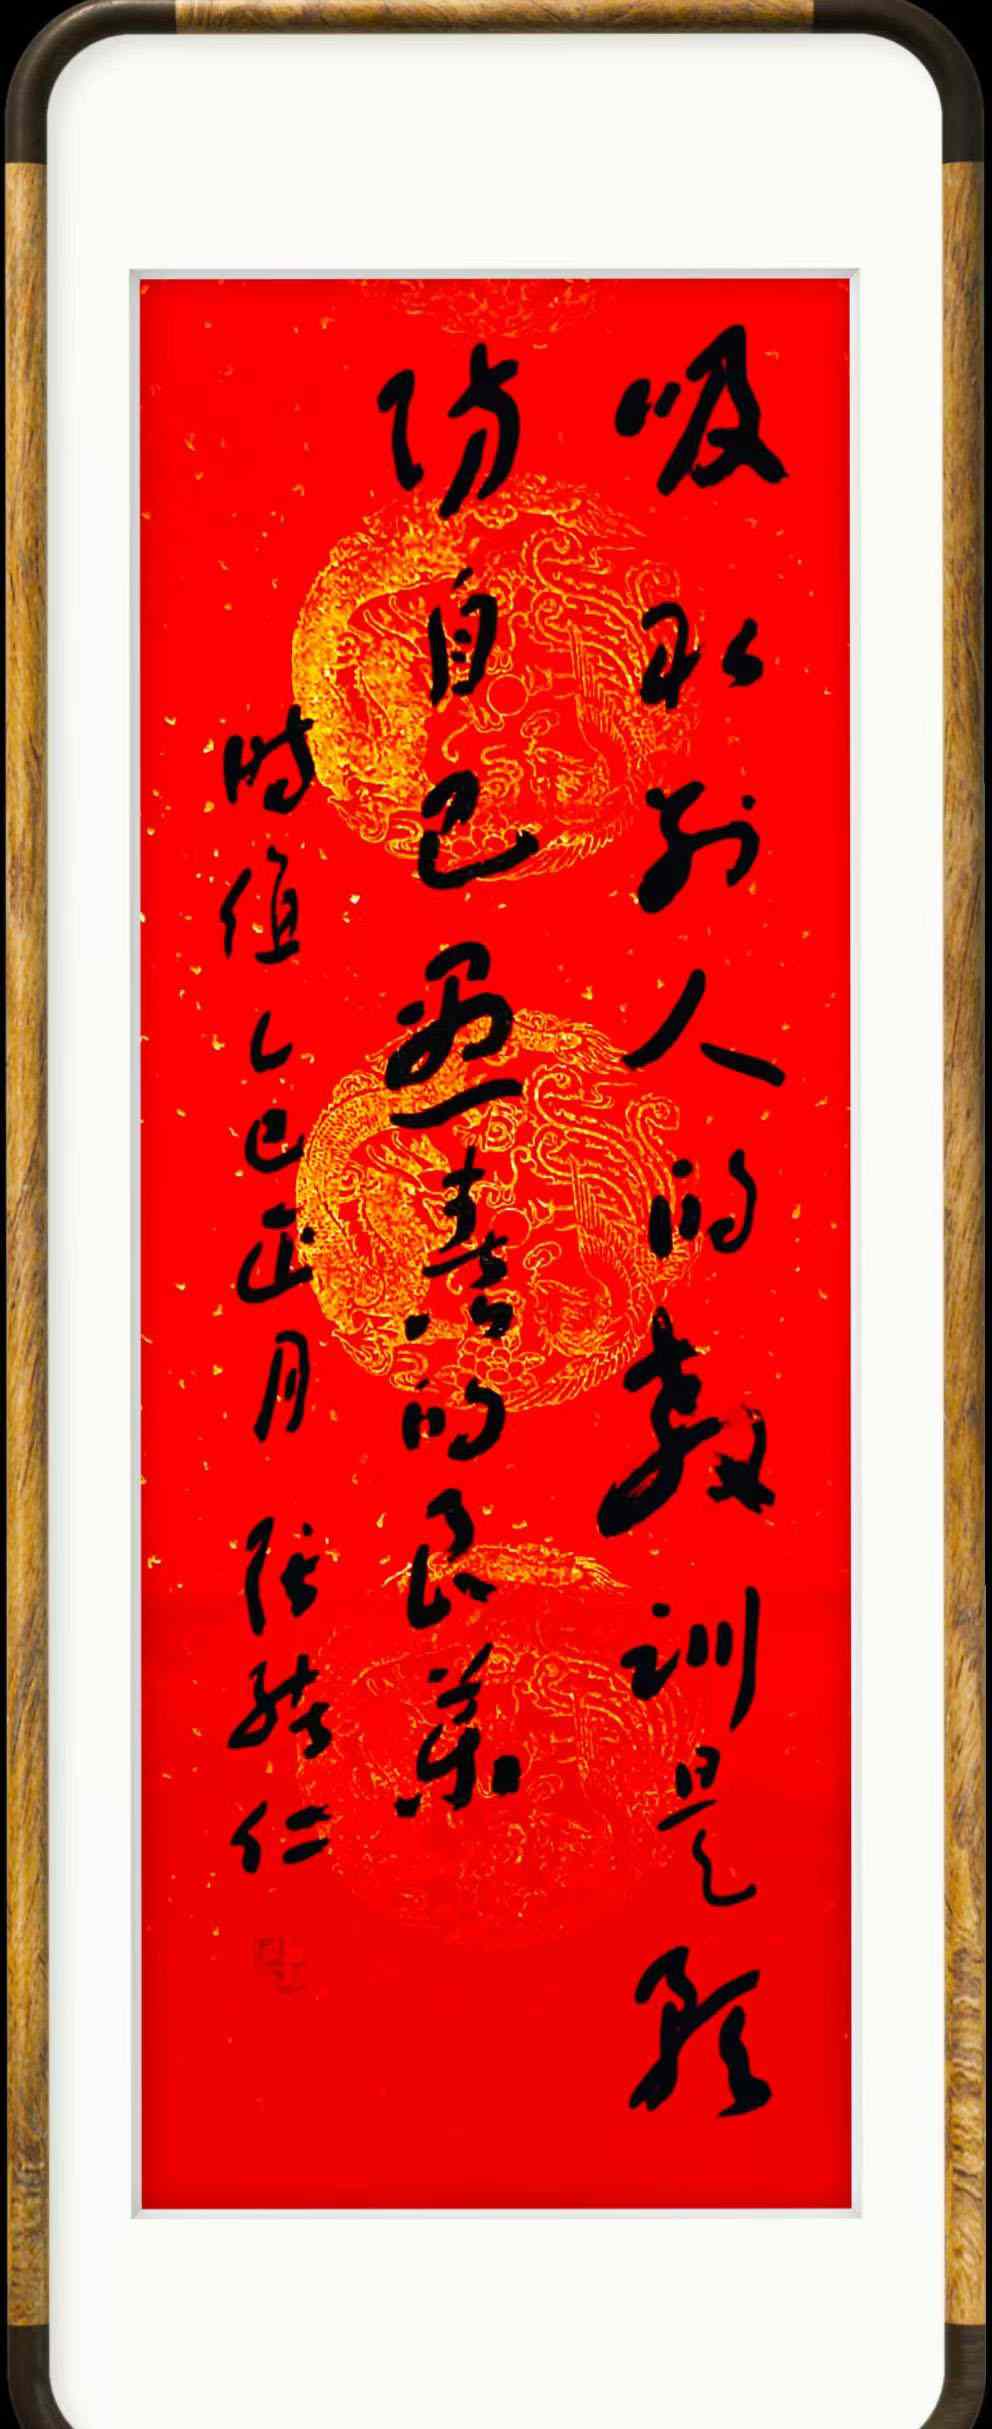 吸取别人的教训是预
防自己愚蠢的良药
时值乙巳正月 张能仁